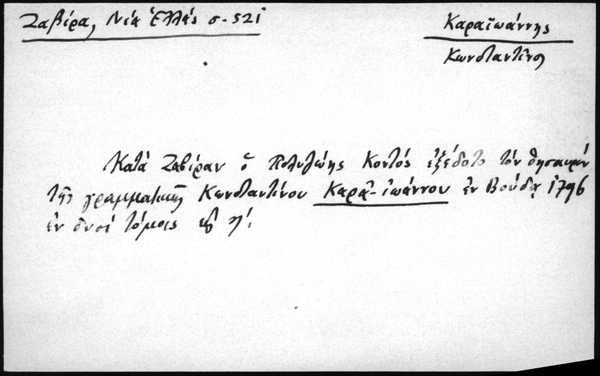 Ζαβίρα, Νέα Ἑλλάς σ. 521
Καραϊωάννης
Κωνσταντῖνος
Κατὰ Ζαβίραν ὁ Πολυζώης Κοντός ἐξέδοτο τὸν θησαυρόν
τῆς γραμματικῆς Κωνσταντίνου Καρα-ϊωάννου ἐν Βούδᾳ 1796
ἐν δυσί τόμοις εἰς η΄.